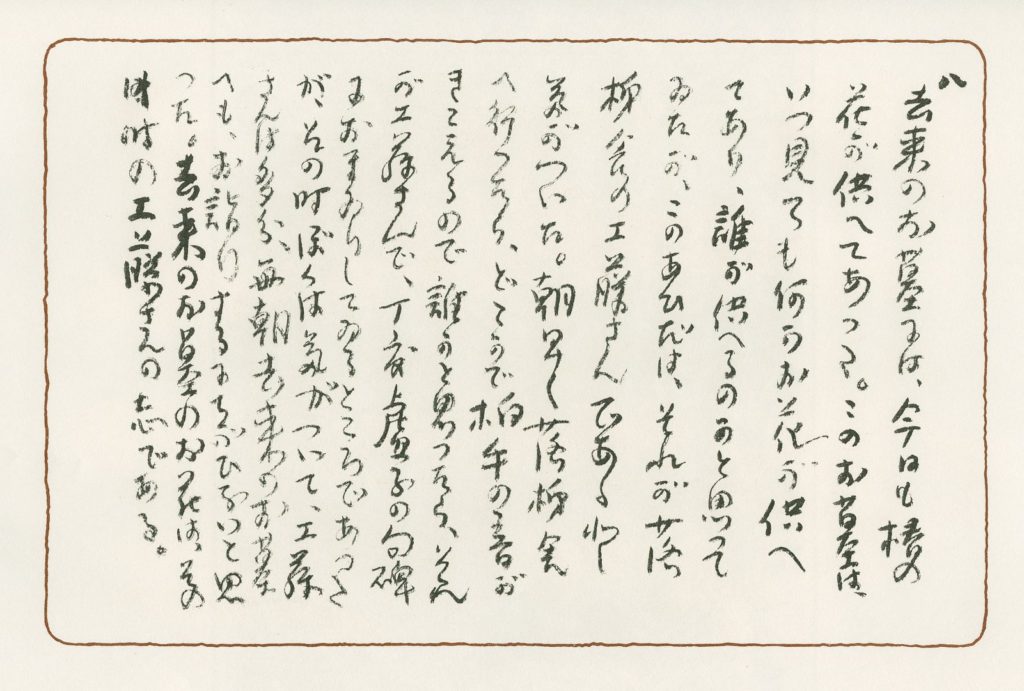 八
去来のお墓には、今日も椿の
花が供へてあつた。このお墓は、
いつ見ても何かお花が供へ
てあり、誰が供へるのかと思つて
ゐたが、このあひだは、それが落
柿舎の工藤さんであると
気がついた。朝早く落柿舎
へ行つたら、どこかで柏手の音が
きこえるので誰かと思つたら、それ
が工藤さんで、丁度虚子の句碑
におまゐりしてゐるところであつた
が、その時ぼくは気がついて、工藤
さんは多分、毎朝去来のお墓
へも、お詣りするにちがひないと思
つた。去来のお墓のお花は、その
時時の工藤さんの志である。